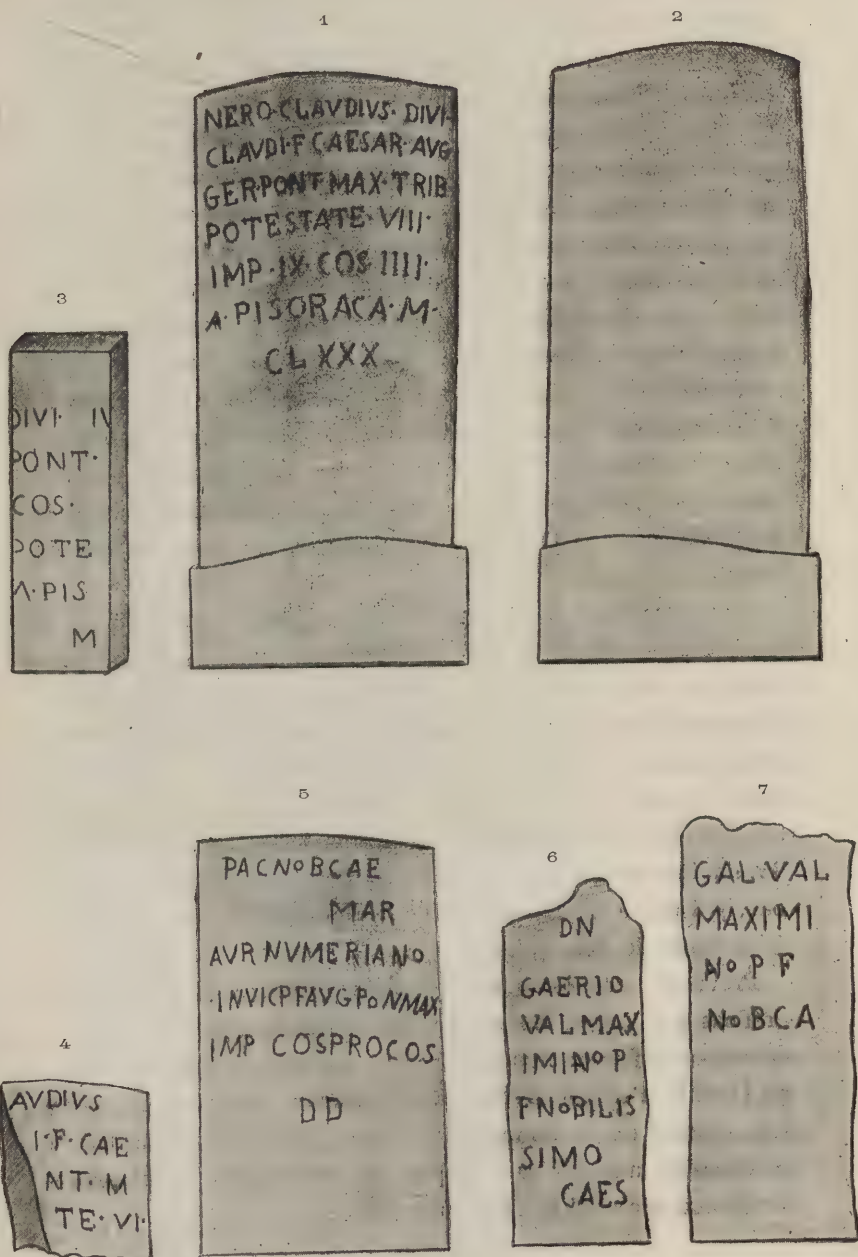 1
NERO·CLAVDIVS·DIVI·
CLAVDI·F CAESAR·AVG
GER·PONT·MAX·TRIB
POTESTATE·VIII·
IMP·IX·COS·IIII·
A·PISORACA·M·
CLXXX
2
3
DIVI· IV
PONT·
COS·
POTE
A·PIS
M
4
AVDIVS
I·F·CAE
NT·M
TE·VI·
5
PACNOBCAE
MAR
AVR NVMERIANO
·INVICPFAVGPONMAX
IMP COSPROCOS
DD
6
DN
GAERIO
VALMAX
IMINO P
FNOBILIS
SIMO
CAES
7
GALVAL
MAXIMI
NO P F
NOBCA